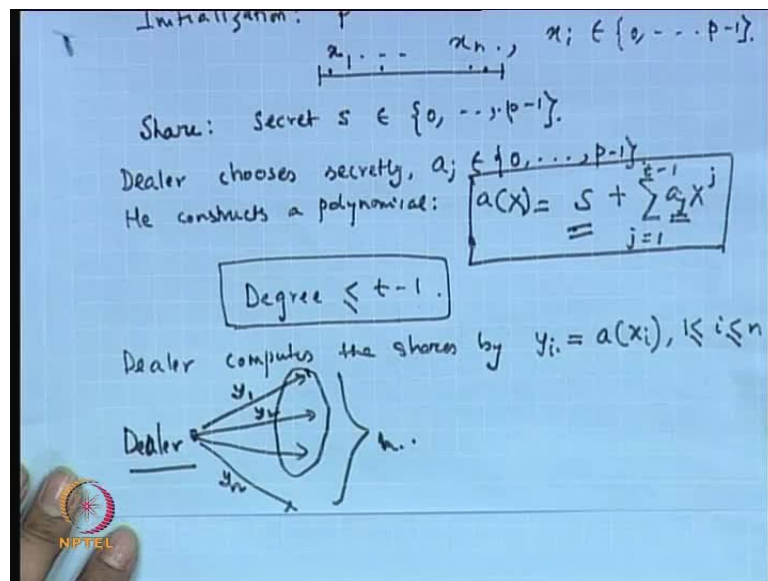 Initialization: p
x1. . - - xn., xi ∈ {0, - - - p-1}.
Share: Secret s ∈ {0, - -, p-1}.
Dealer chooses secretly, aj ∈ {0, . . . , p-1}
He constructs a polynomial: a(X) = s + ∑_{j=1}^{t-1} aj X^j
Degree ≤ t-1.
Dealer computes the shares by yi = a(xi), 1 ≤ i ≤ n
y1
y2
Dealer
n..
yn
NPTEL